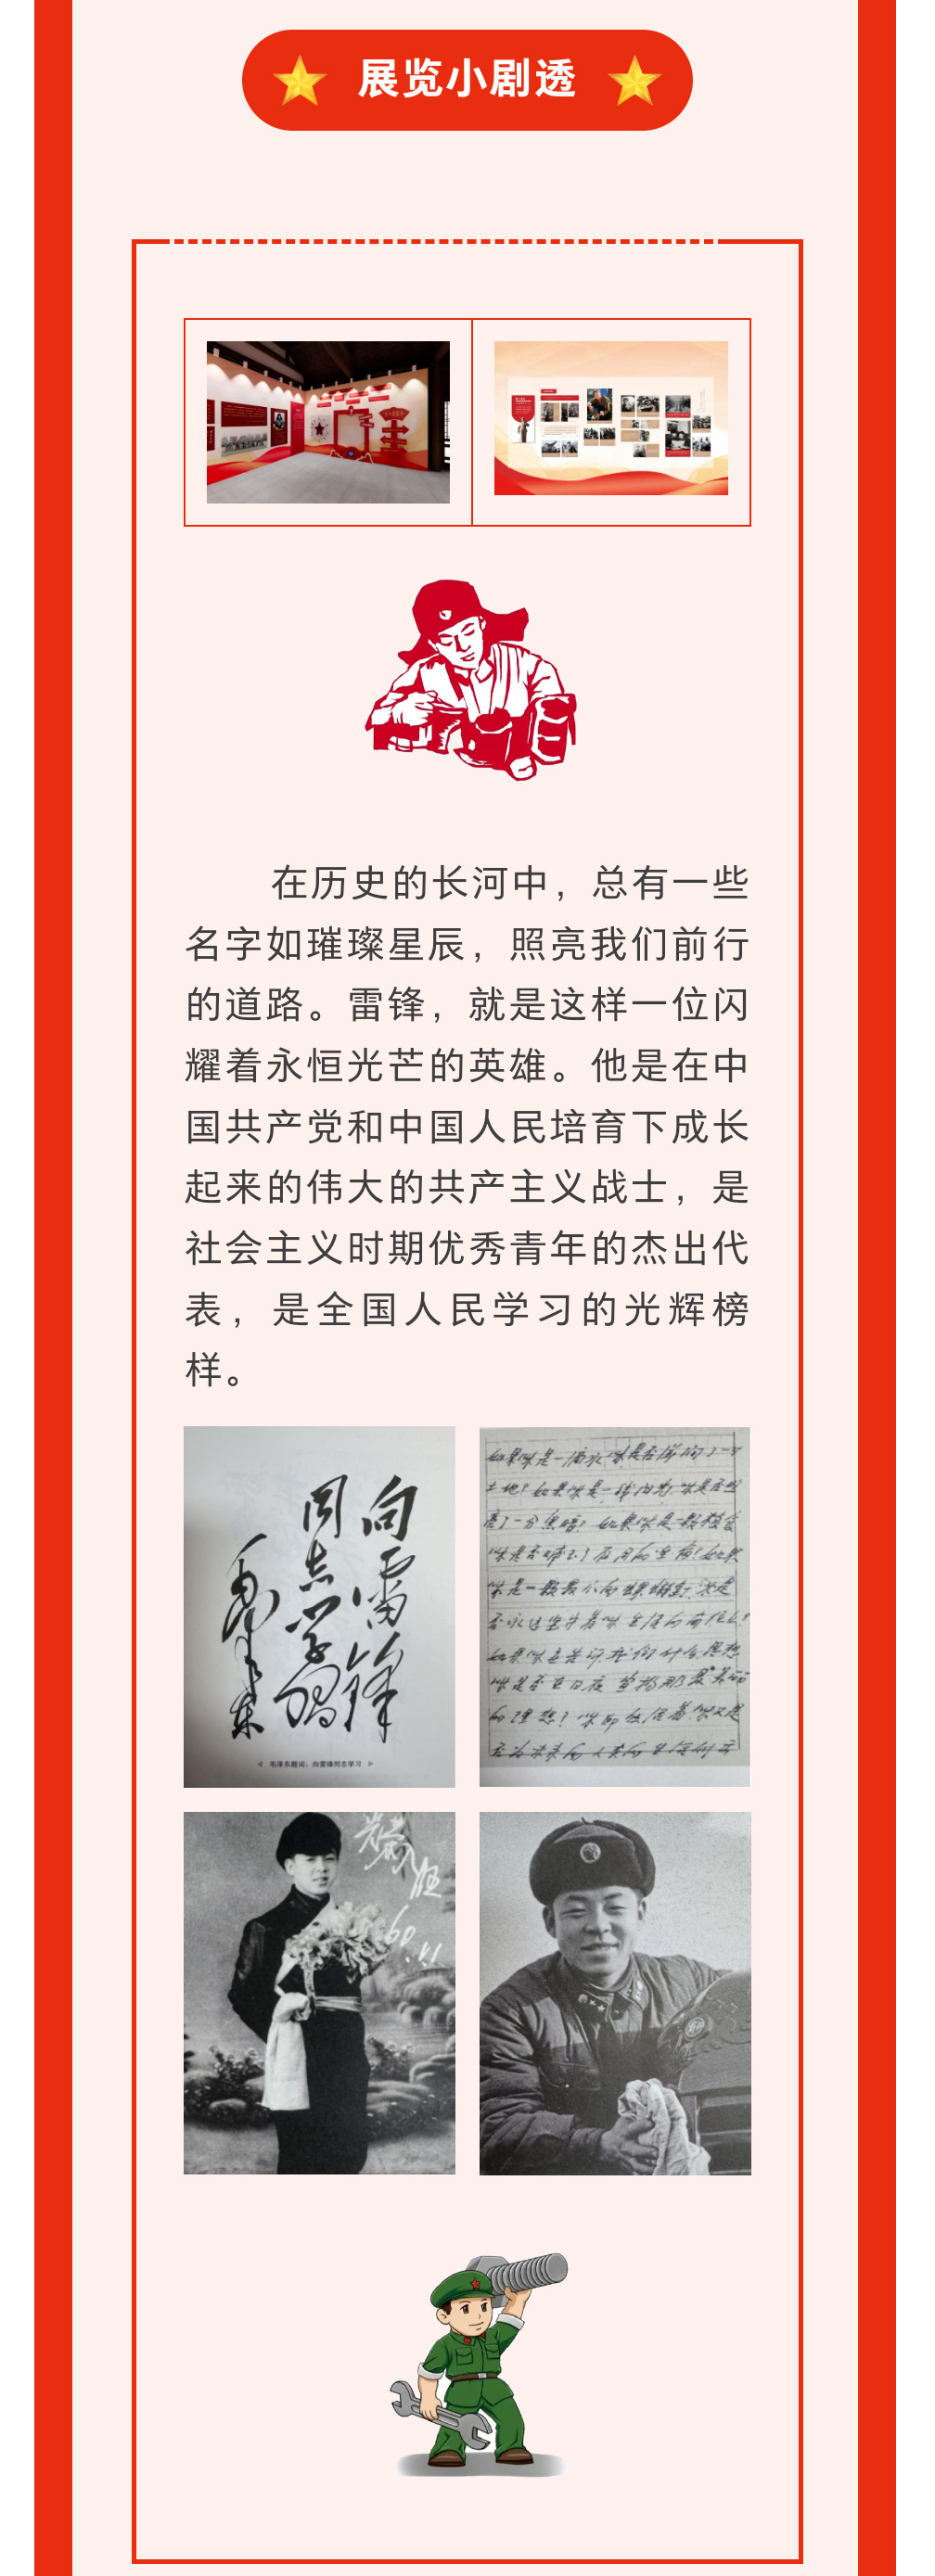 展览小剧透
在历史的长河中，总有一些
名字如璀璨星辰，照亮我们前行
的道路。雷锋，就是这样一位闪
耀着永恒光芒的英雄。他是在中
国共产党和中国人民培育下成长
起来的伟大的共产主义战士，是
社会主义时期优秀青年的杰出代
表，是全国人民学习的光辉榜
样。
向雷锋
同志学习
毛泽东
毛泽东题词：向雷锋同志学习
如果你是一滴水，你是否滋润了一寸
土地？如果你是一线阳光，你是否照
亮了一分黑暗？如果你是一颗粮食
你是否哺育了有用的生命？如果
你是一颗最小的螺丝钉，你是
否永远坚守着你生活的岗位？
如果你要告诉我们什么思想
你是否在日夜宣扬那最美丽
的理想？你既然活着，你又是
否为未来的人类的生活付出